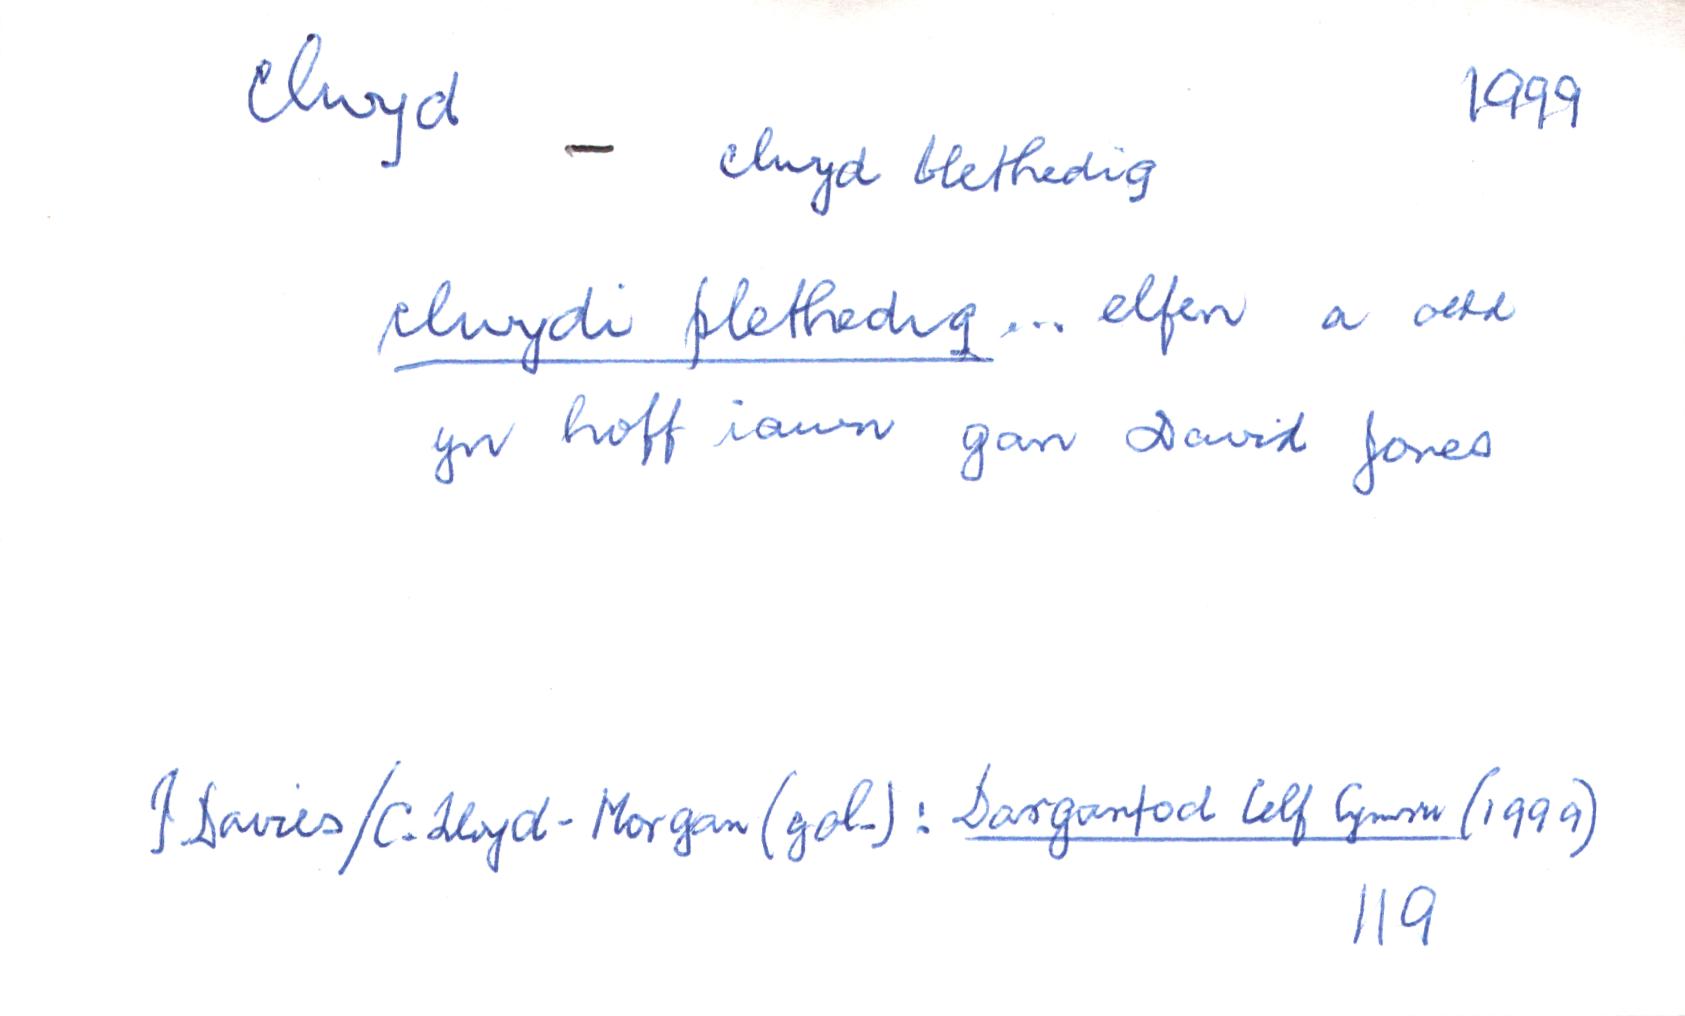 clwyd 1999
– clwyd blethedig
clwydi plethedig ... elfen a oedd
yn hoff iawn gan David Jones
I Davies/C. Lloyd-Morgan (gol.): Darganfod Celf Cymru (1999)
119